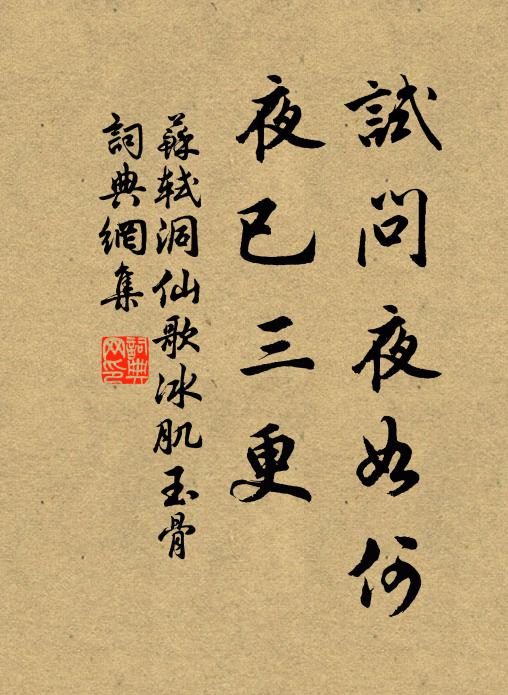 試問夜如何
夜已三更
蘇軾洞仙歌冰肌玉骨
詞典網集
詞典
网印